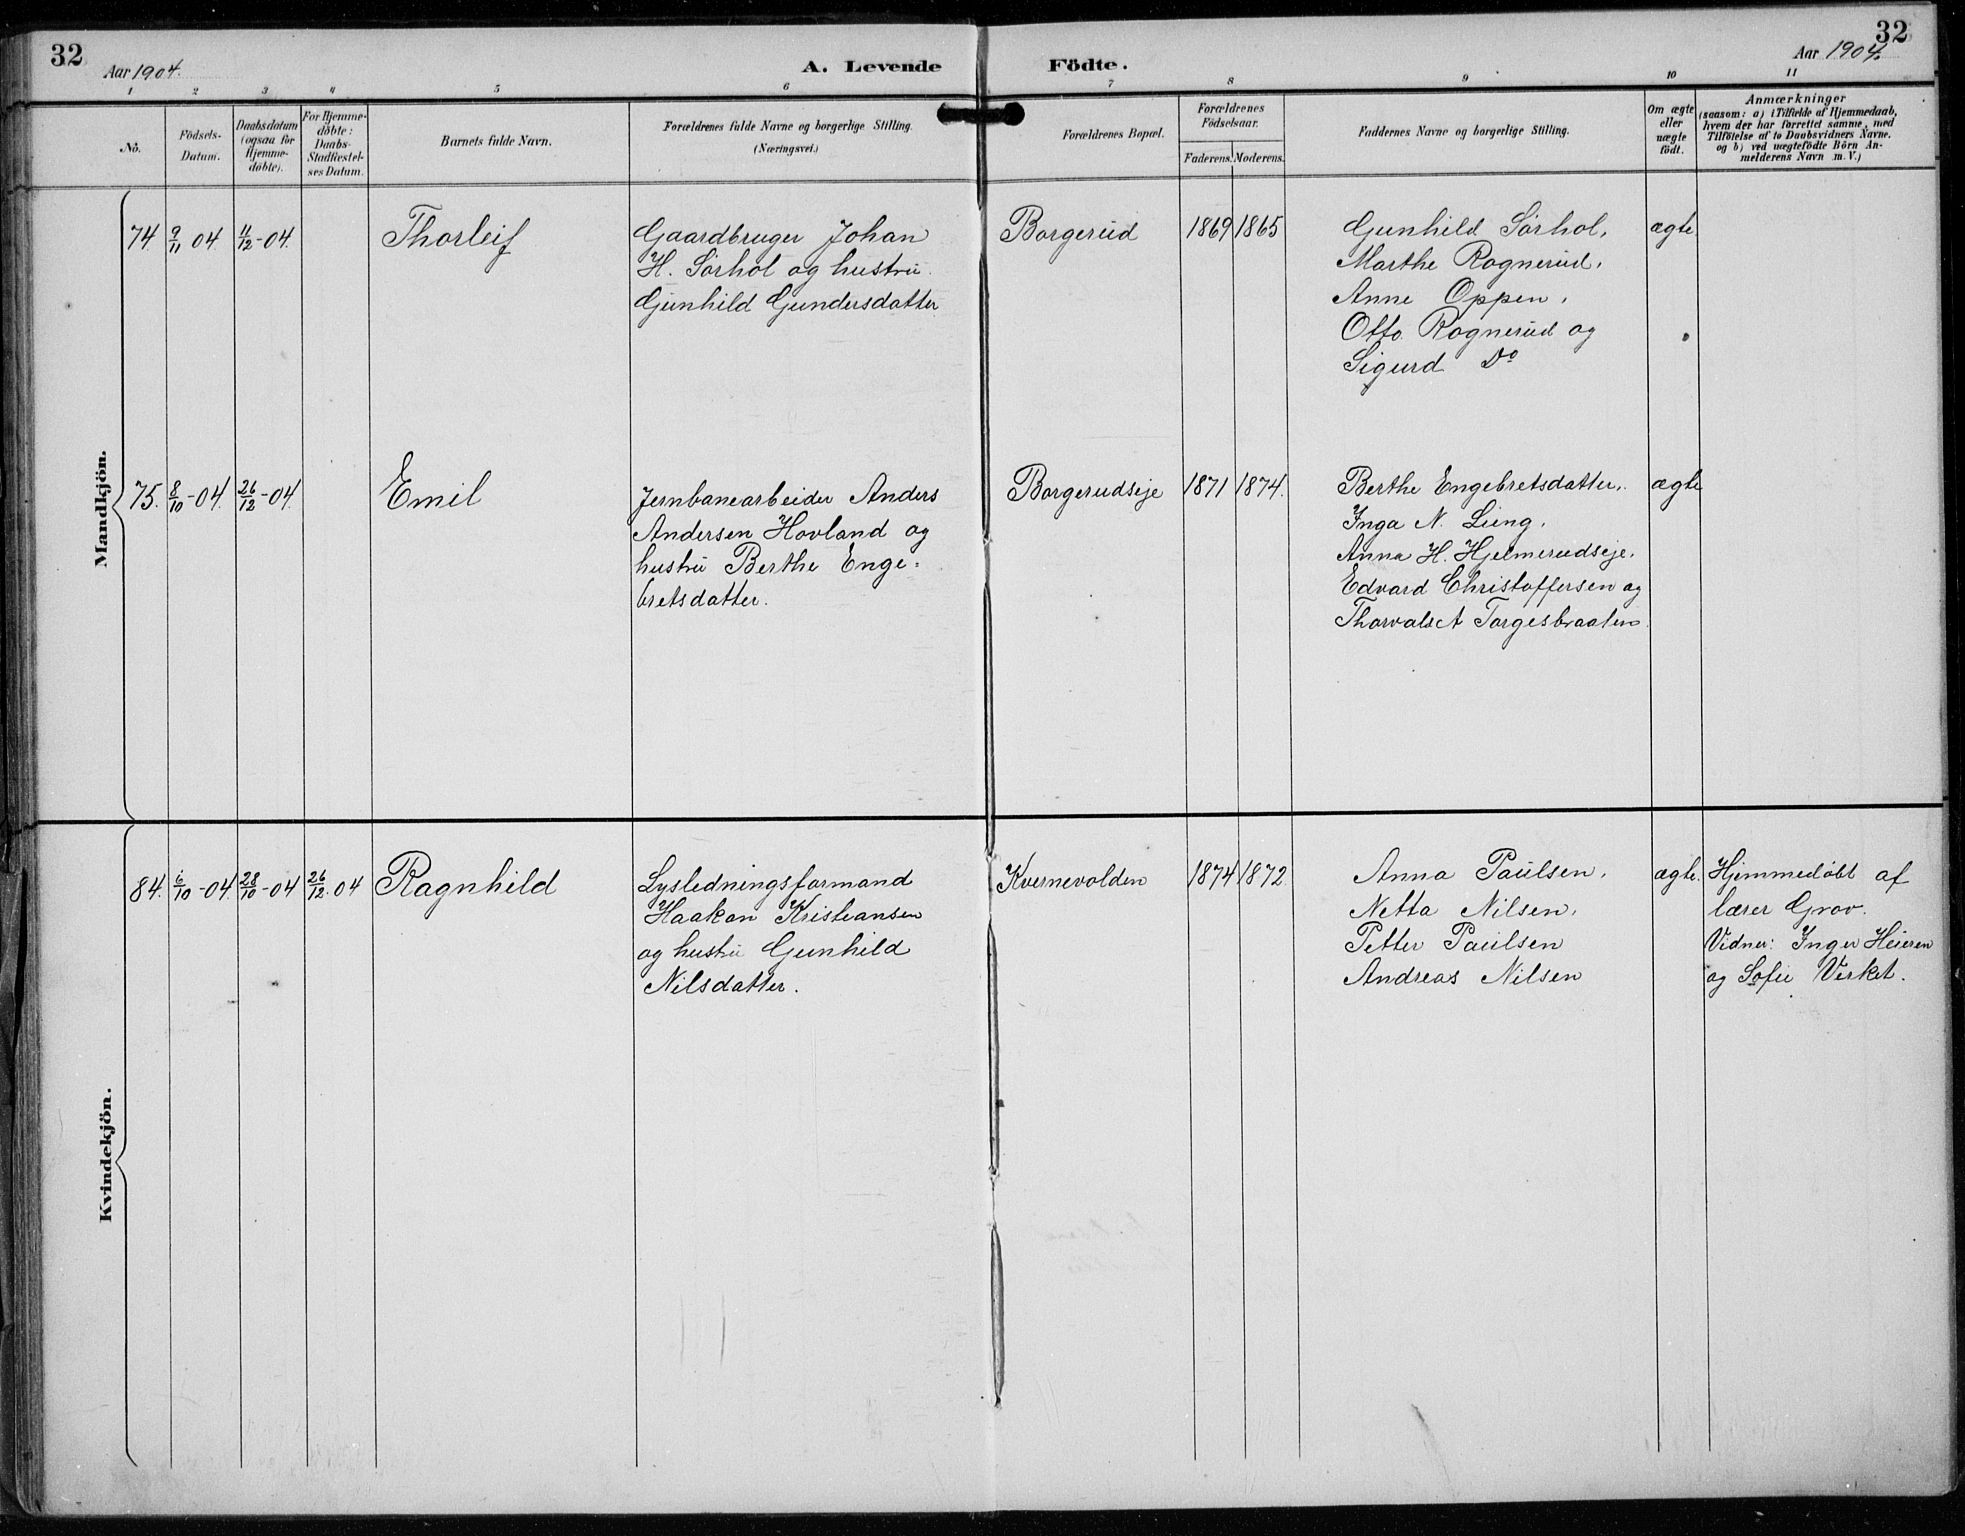 32
Aar 1904.
A. Levende
Födte.
Aar 1904.
32
1 2 3 4 5 6 7 8 9 10 11
No.
Födsels-
Datum.
Daabsdatum
(ogsaa for
Hjemme-
döbte).
For Hjemme-
döbte:
Daabs-
Stadfæstel-
ses Datum.
Barnets fulde Navn.
Forældrenes fulde Navne og borgerlige Stilling.
(Næringsvei.)
Forældrenes Bopæl.
Forældrenes
Födselsaar.
Faderens. Moderens.
Faddernes Navne og borgerlige Stilling.
Om ægte
eller
uægte
födt.
Anmærkninger
(saasom: a) i Tilfælde af Hjemmedaab,
hvem der har forrettet samme, med
Tilföielse af to Daabsvidners Navne,
og b) ved uægtefödte Börn An-
melderens Navn m. V.)
Mandkjön.
74. 9/11 04 11/12-04. Thorleif
Gaardbruger Johan
H. Sörhol og hustru
Gunhild Gundersdatter
Borgerud 1869 1865
Gunhild Sörhol,
Marthe Rognerud,
Anne Oppen,
Otto Rognerud og
Sigurd Do
ægte
75. 8/10-04. 26/12-04. Emil
Jernbanearbeider Anders
Andersen Hovland og
hustru Berthe Enge-
bretsdatter.
Borgerudseje 1871 1874.
Berthe Engebretsdatter,
Inga N. Lieng,
Anna H. Hjelmerudseje,
Edvard Christoffersen og
Thorvald A Torgesbraaten
ægte
Kvindekjön.
84. 6/10-04. 28/10-04 26/12-04 Ragnhild
Lysledningsformand
Haakon Kristiansen
og hustru Gunhild
Nilsdatter.
Kvernevolden 1874 1872.
Anna Paulsen,
Netta Nilsen,
Petter Paulsen
Andreas Nilsen
ægte.
Hjemmedöbt af
lærer Grov.
Vidner: Inger Heieren
og Sofie Virket.